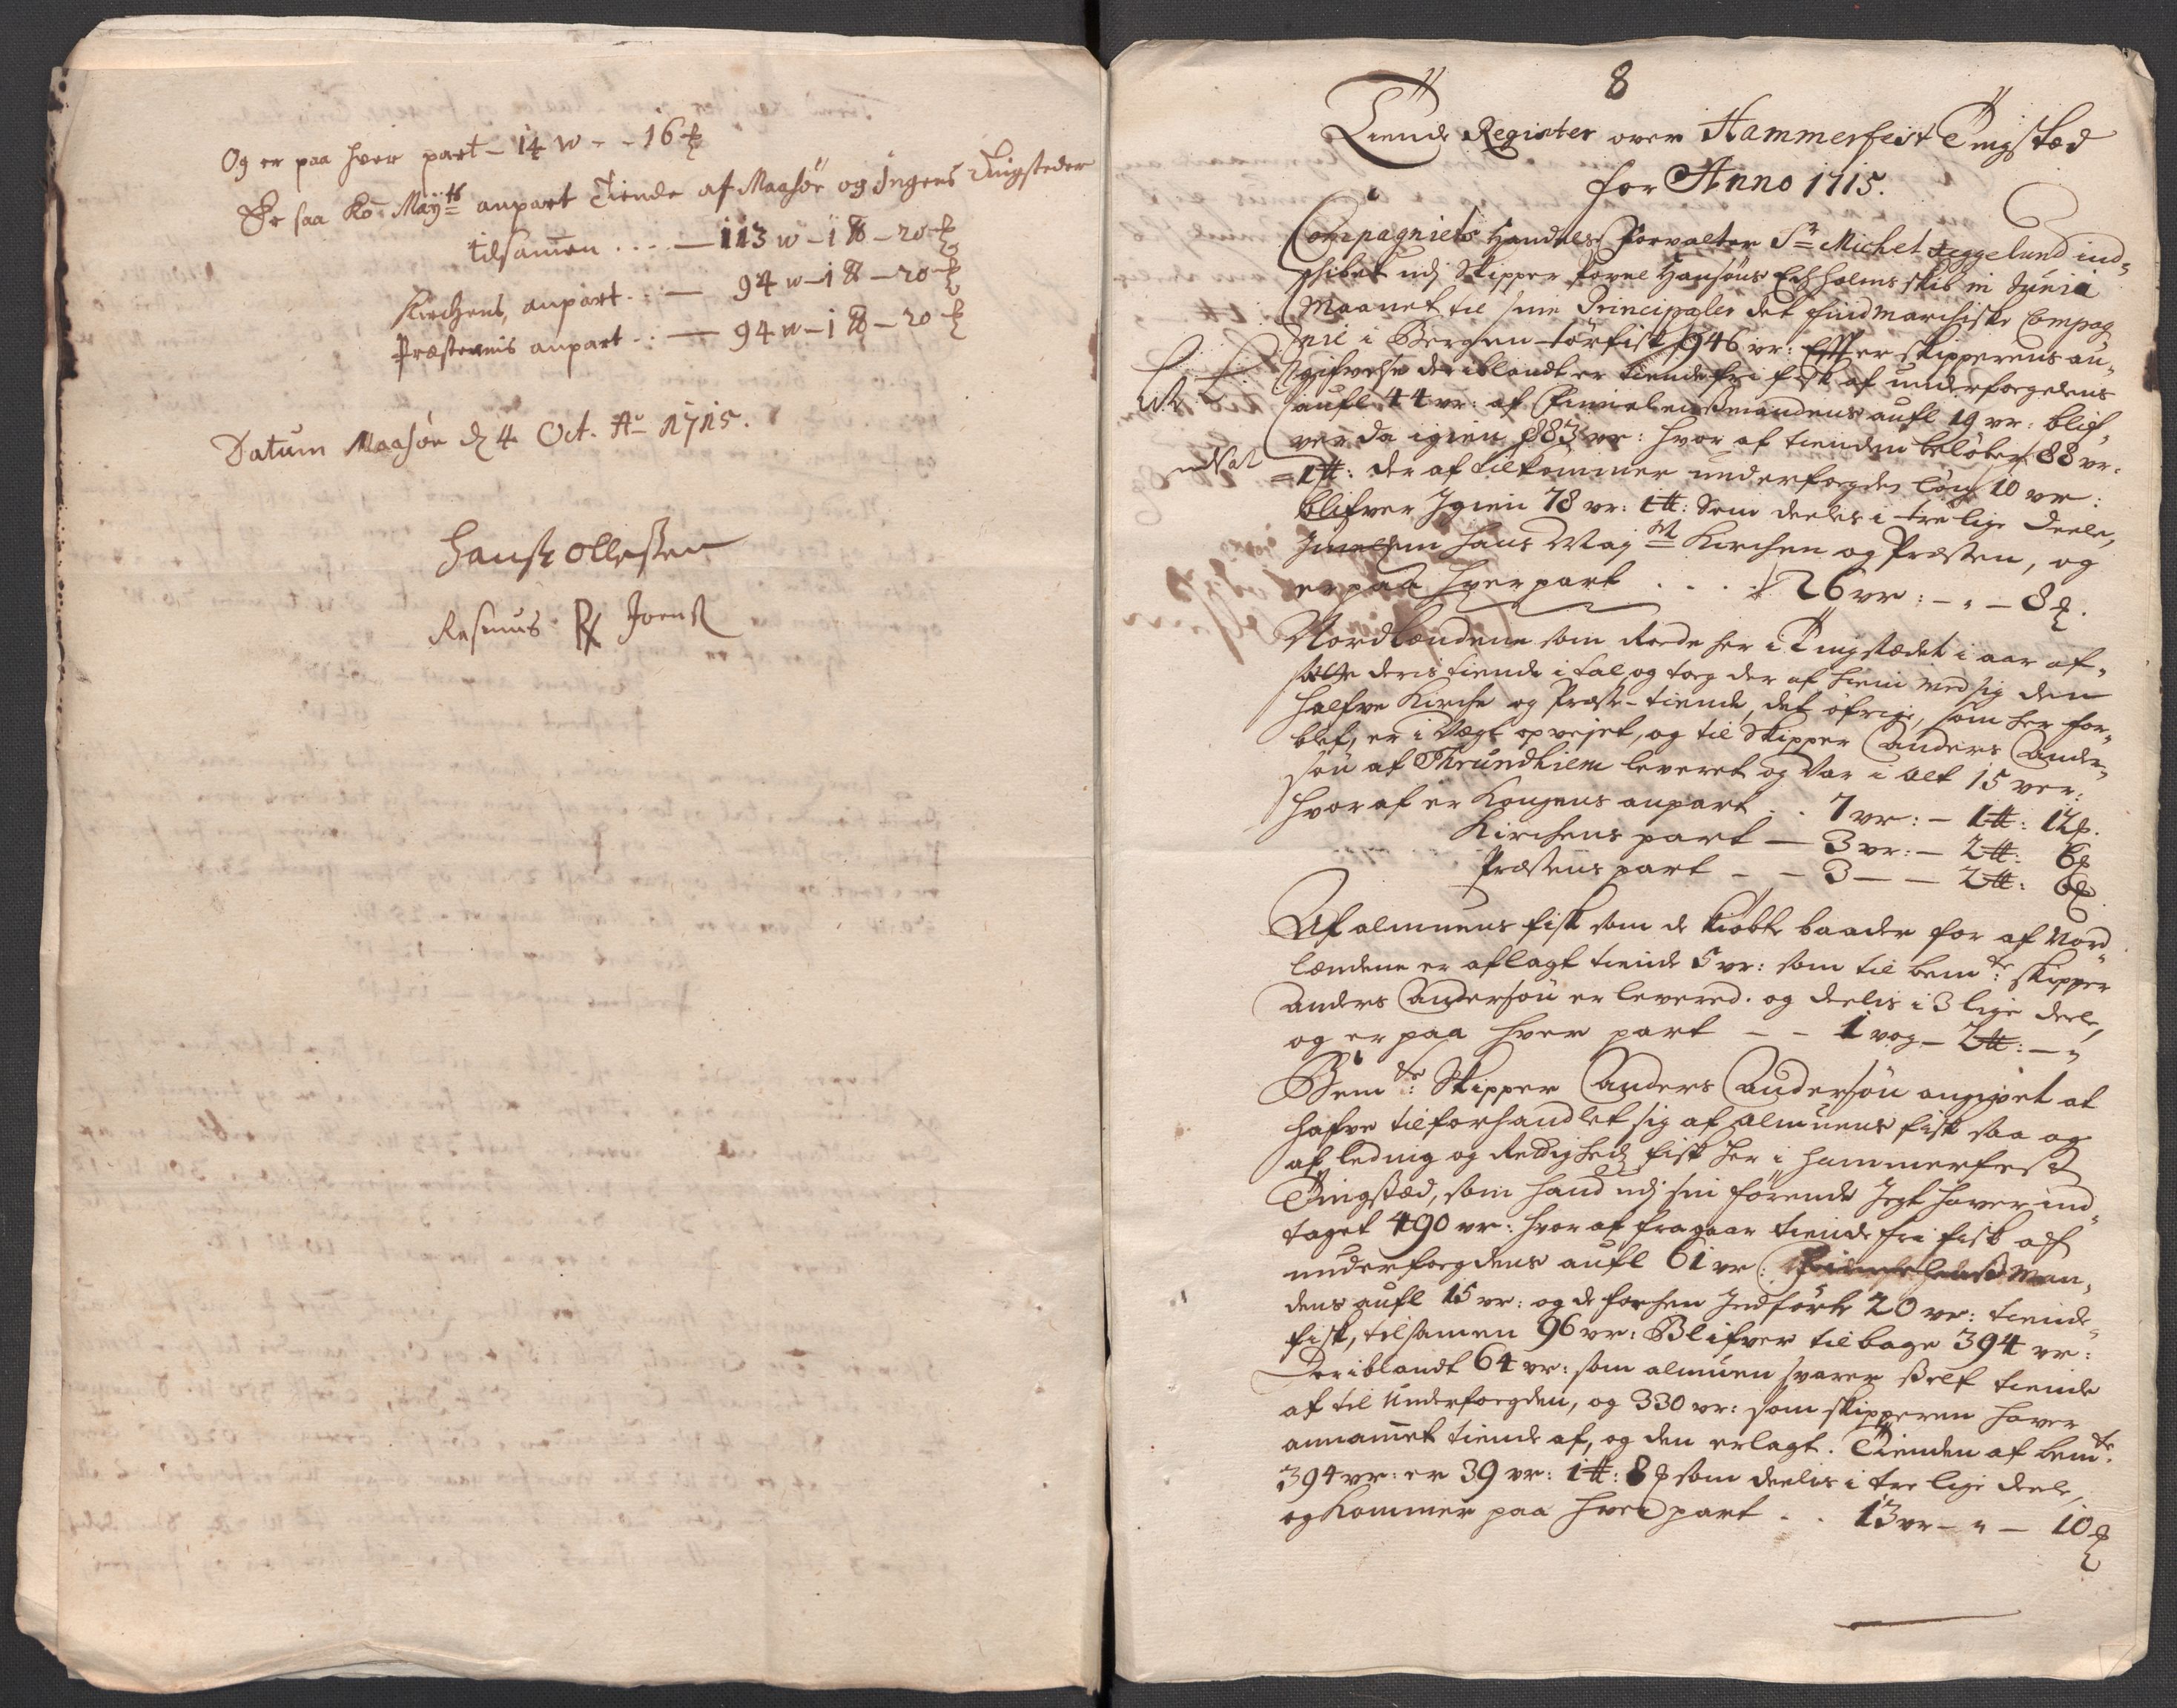 Og er paa hver part – 14 w – – 16 ℔
Er saa Ko: Mayts anpart Tiende af Maasøe og Ingens Tingsteder
tilsamen . . . . — 113 w – 1 ℔ – 20 ℔
Kirchens, anpart . . — 94 w – 1 ℔ – 20 ℔
Præstennis anpart . . — 94 w – 1 ℔ – 20 ℔
Datum Maasøe d 4 Oct. Ao 1715.
Hans Ollessen
Rasmus R Joens
8
Tiende Register over Hammerfest Tingsted
for Anno 1715.
Compagniets Handels Forvalter Sr Michel Heggelund ind-
skibet udj Skipper Povel Hansøns Echholms skib in Junio
Maanet til sine Principaler det findmarchiske Compag
nie i Bergen tørfisk 946 vr: Effter skipperens an-
gifvelse deriblandt er tiendefri fisk af underfogdens
aufl 44 vr: af Finnelensmandens aufl 19 vr: blif-
ver da igien 883 vr: hvor af tienden beløber 88 vr:
1 ℔: der af tilkommer underfogden løn 10 vr:
blifver Igien 78 vr: 1 ℔: Som deeles i tre lige Deele,
Imellem Hans Mayt Kirchen og Præsten, og
er paa hver part . . . 26 vr: – „ – 8 ℔.
Nordlændene som Roede her i Tingstædet i aar af-
lagde deris tiende i tal, og tog der af hiem med sig den
halfve Kirche og Præste-tiende, det øfrige, som her for-
blef, er i Vegt opvejet, og til Skipper Anders Ander-
søn af Thrundhiem leveret og Var i alt 15 ver:
hvor af er Kongens anpart . . 7 vr: – 1 ℔: 12 ℔.
Kirchens part — 3 vr: – 2 ℔: 6 ℔
Præstens part – – 3 — – 2 ℔: 6 ℔
Af almuens fisk som de kiøbte baader for af Nord
lændene er aflagt tiende 5 vr: som til bemte: skipper
Anders Andersøn er levered. og deelis i 3 lige deele,
og er paa hver part – – 1 vog – 2 ℔: – „
Bemte: Skipper Anders Andersøn angivet at
hafve tilforhandlet sig af almuens fisk saa og
af leding og Rettighedz fisk her i Hammerfest
Tingsted, som hand udj sin førende Jegt haver ind-
taget 490 vr: hvor af fragaar tiende fri fisk af
underfogdens aufl 61 vr: man-
dens aufl 15 vr: og de forhen Indførte 20 vr: tiende-
fisk, tilsamen 96 vr: Blifver tilbage 394 vr:
Deriblandt 64 vr: som almuen svarer self tiende
af til Underfogden, og 330 vr: som skipperen haver
annammet tiende af, og den erlagt. Tienden af bemte:
394 vr: er 39 vr: 1 ℔: 8 ℔ som deelis i tre lige deele,
og kommer paa hver part . . 13 vr – „ – 10 ℔